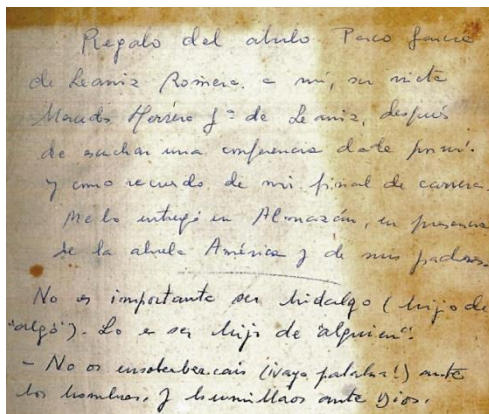 Regalo del abulo Paco García
de Leaniz Romera. a mí, su nieto
Marcos Herrero Gª de Leaniz, después
de escuchar una conferencia dada por mí.
y como recuerdo de mi final de carrera.
Me lo entregó en Almazán, en presencia
de la abuela América y de mis padres.
No es importante ser hidalgo (hijo de
"algo"). Lo es ser hijo de "alguien".
- No os ensoberbezcais (¡vaya palabra!) ante
los hombres, y humillaos ante Dios.